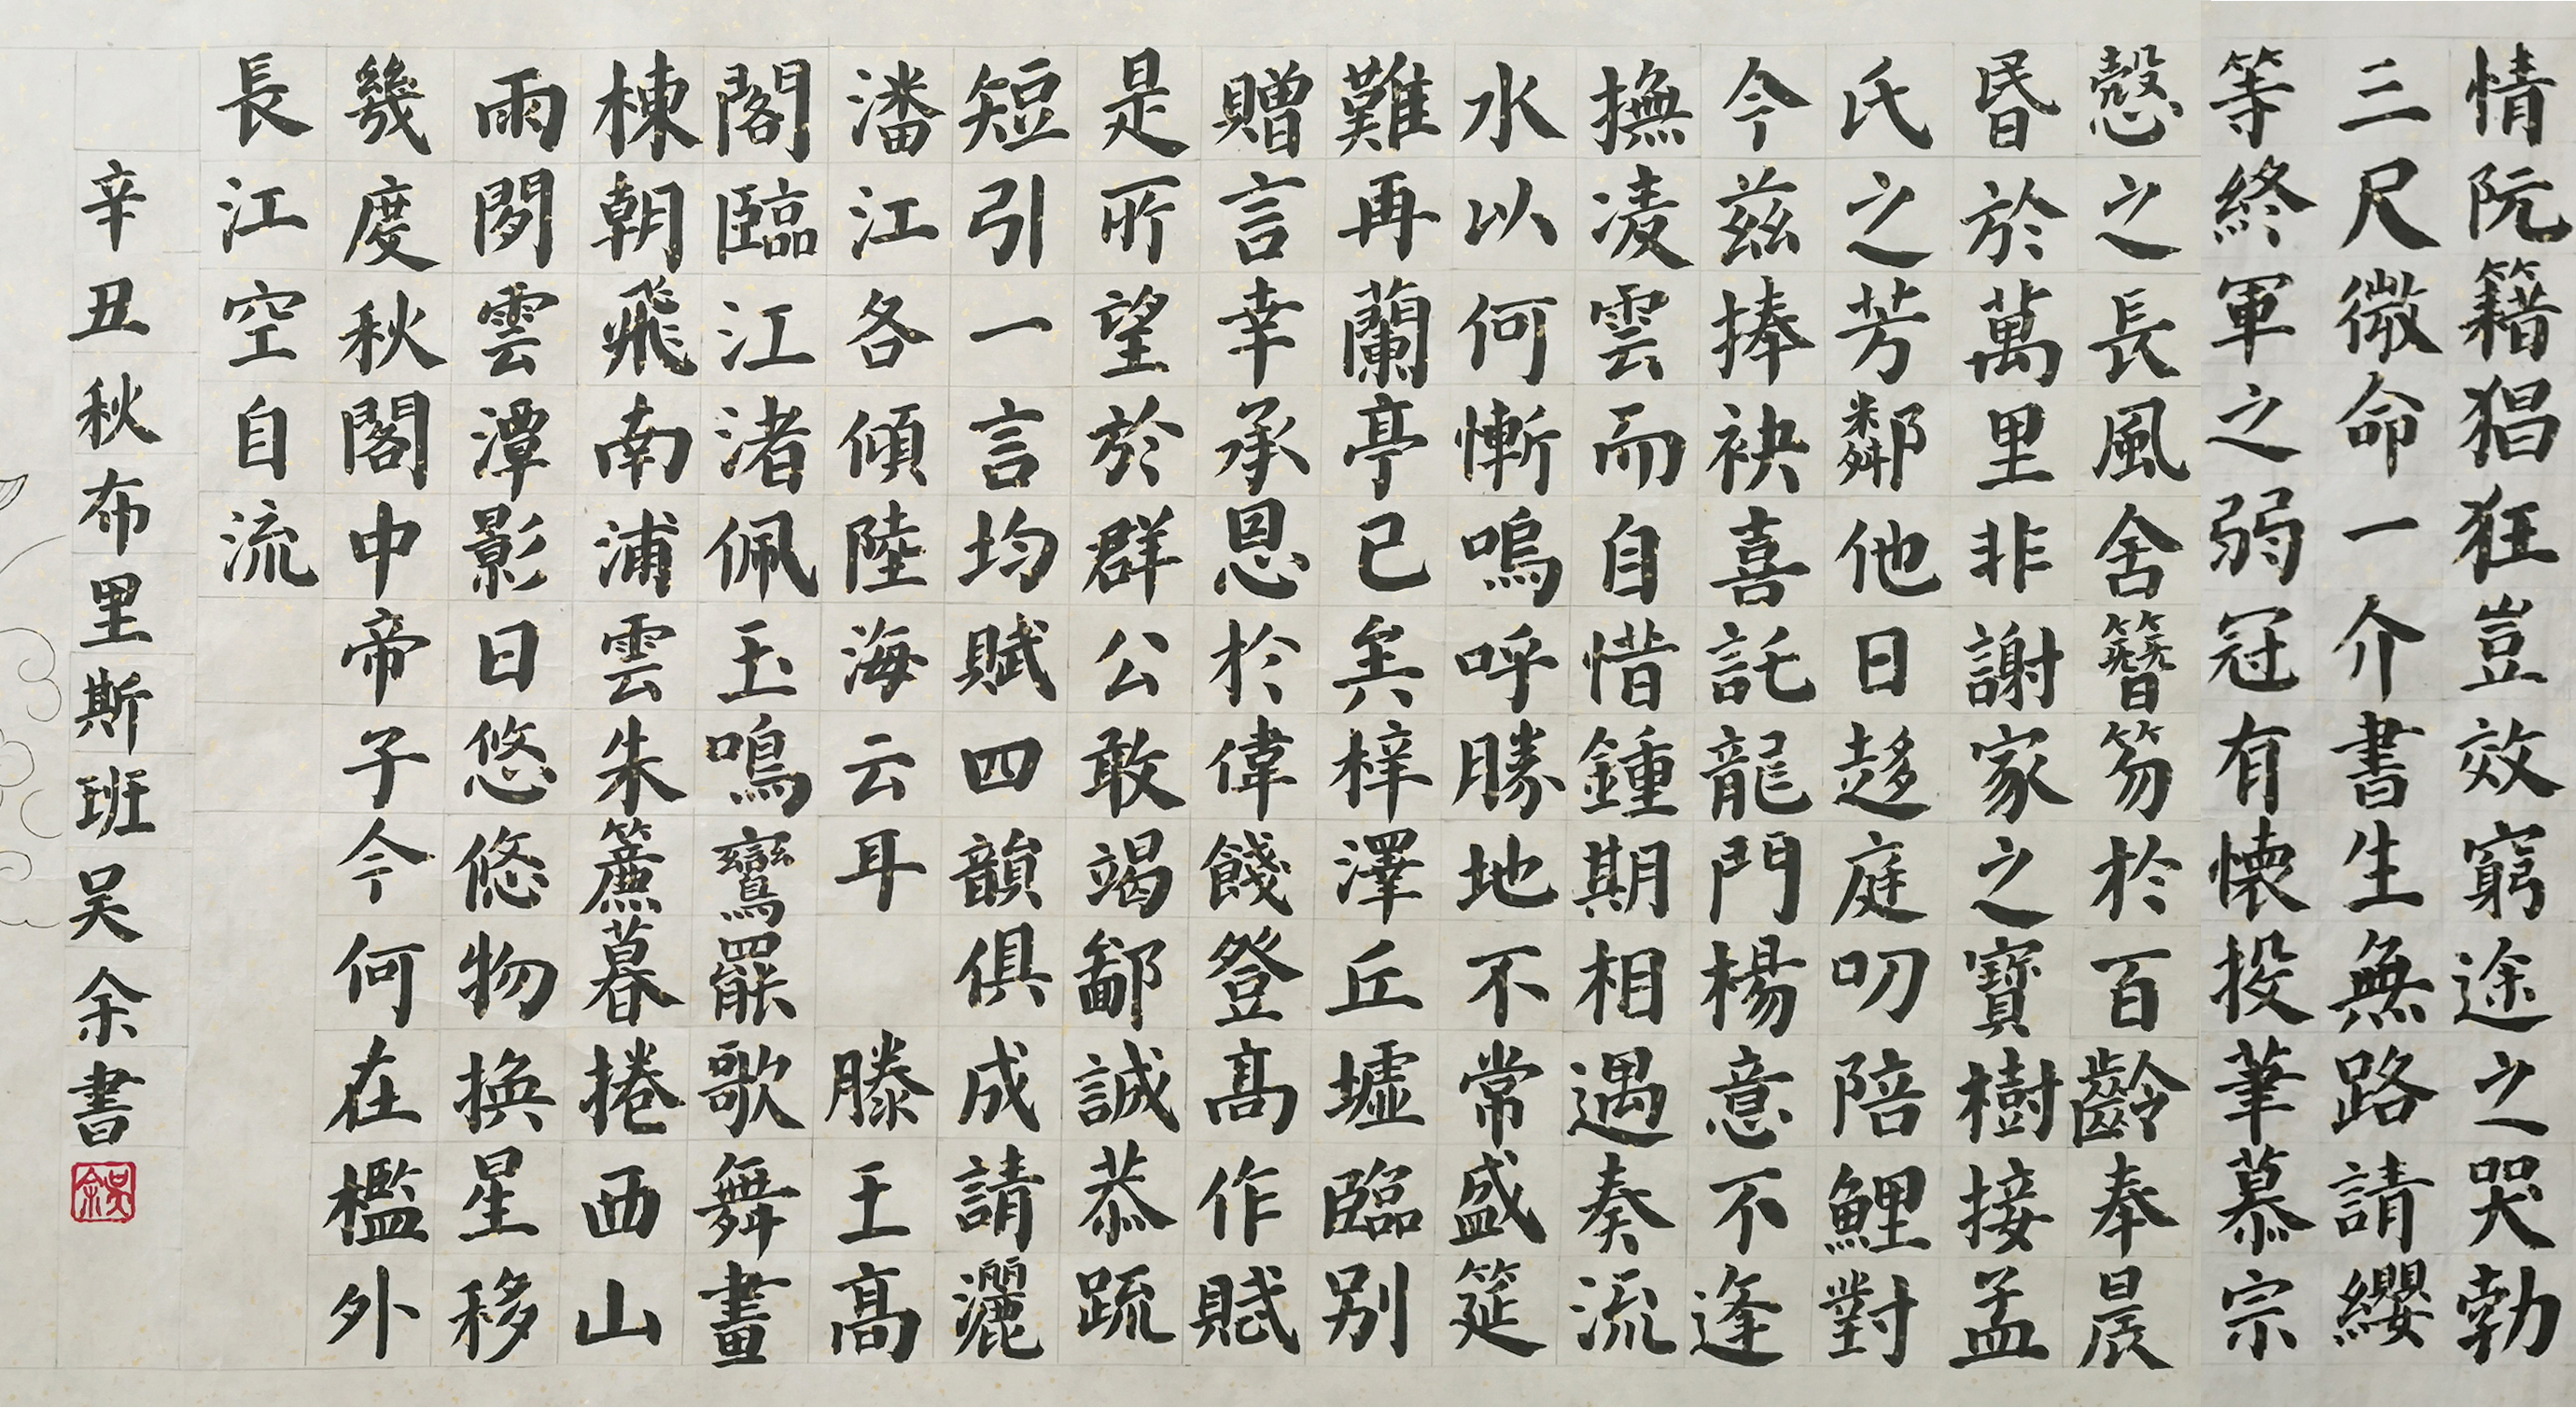 情阮籍猖狂豈效窮途之哭勃
三尺微命一介書生無路請纓
等終軍之弱冠有懷投筆慕宗
慤之長風舍簪笏於百齡奉晨
昏於萬里非謝家之寶樹接孟
氏之芳鄰他日趍庭叨陪鯉對
今兹捧袂喜託龍門楊意不逢
撫凌雲而自惜鍾期相遇奏流
水以何慚嗚呼勝地不常盛筵
難再蘭亭已矣梓澤丘墟臨别
贈言幸承恩於偉餞登高作賦
是所望於群公敢竭鄙誠恭疏
短引一言均賦四韻俱成請灑
潘江各傾陸海云耳 滕王高
閣臨江渚佩玉鳴鸞罷歌舞畫
棟朝飛南浦雲朱簾暮捲西山
雨閒雲潭影日悠悠物換星移
幾度秋閣中帝子今何在檻外
長江空自流
辛丑秋布里斯班吴余書
吳余